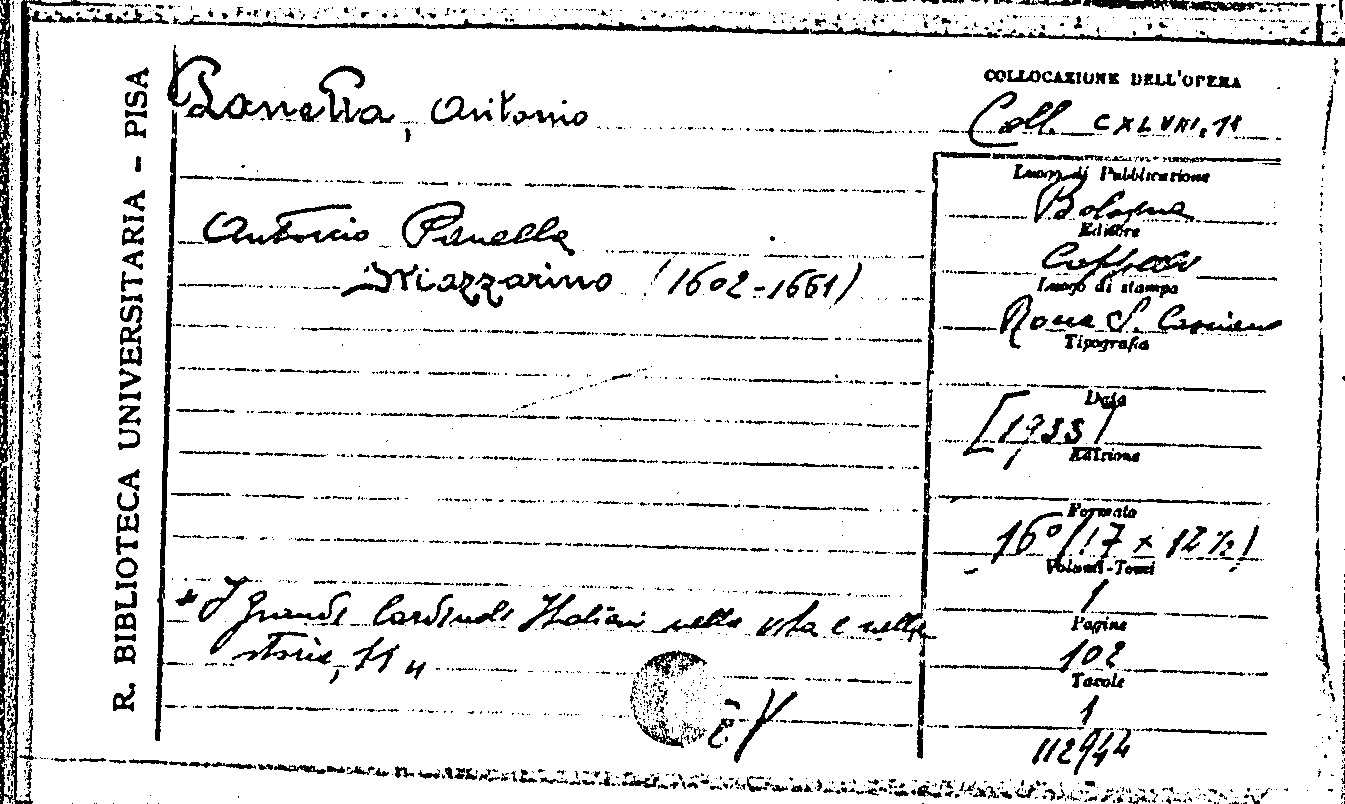 R. BIBLIOTECA UNIVERSITARIA - PISA
Panella, Antonio
COLLOCAZIONE DELL'OPERA
Coll. CXLVIII, 11
Antonio Panella
Mazzarino (1602-1661)
Luogo di Pubblicazione
Bologna
Editore
Cappelli
Luogo di stampa
Rocca S. Casciano
Tipografia
Data
[1933]
Edizione
Formato
16° (17 x 12 ½)
Volumi-Tomi
1
Pagine
102
Tavole
1
112944
"I Grandi Cardinali Italiani nella vita e nella
storia, 11"